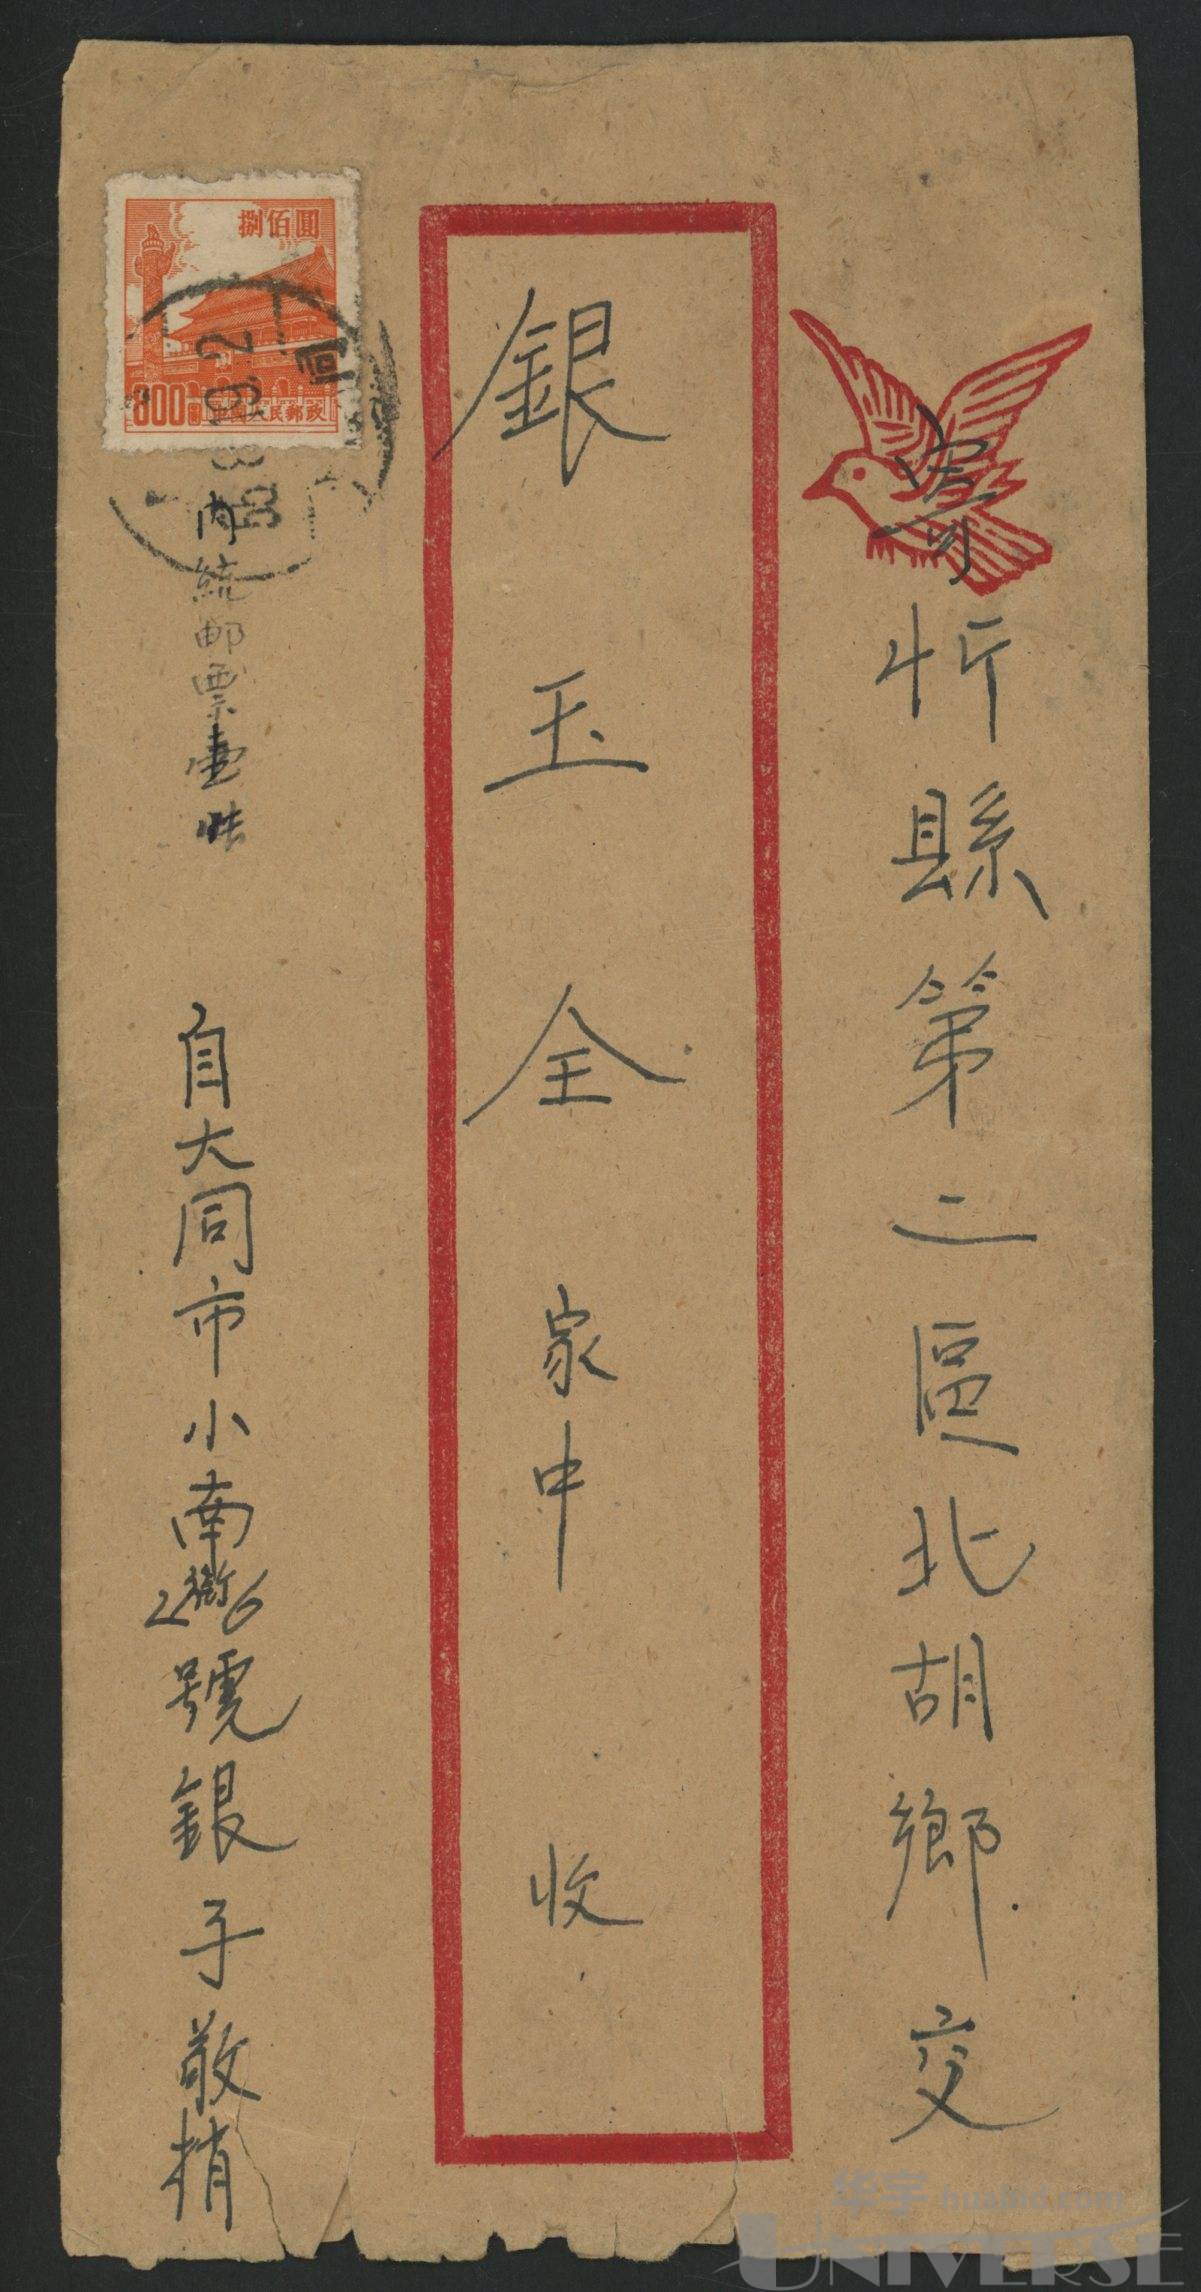 寄忻縣第二區北胡鄉交
銀玉全家中收
捌佰圓
800圓
中國人民郵政
内統邮票壹
自大同市小南街26號銀子敬捎
华宇 huabid.com
UNIVERSE